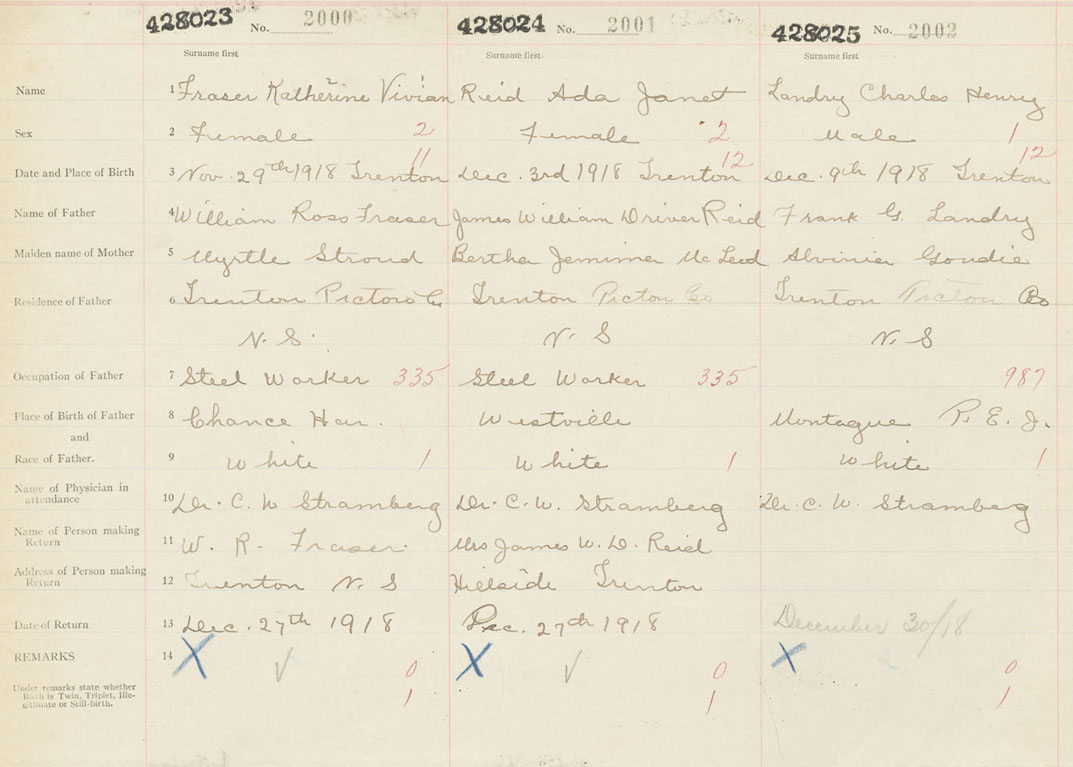 428023 No. 2000 428024 No. 2001 428025 No. 2002
Surname first Surname first Surname first
Name 1 Fraser Katherine Vivian Reid Ada Janet Landry Charles Henry
Sex 2 Female 2 Female 2 Male 1
11 12 12
Date and Place of Birth 3 Nov. 29th 1918 Trenton Dec. 3rd 1918 Trenton Dec. 9th 1918 Trenton
Name of Father 4 William Ross Fraser James William Driver Reid Frank G. Landry
Maiden name of Mother 5 Myrtle Stroud Bertha Jemima McLeod Alvinia Goudie
Residence of Father 6 Trenton Pictou Co Trenton Pictou Co Trenton Pictou Co
N. S. N. S N. S
Occupation of Father 7 Steel Worker 335 Steel Worker 335 987
Place of Birth of Father 8 Chance Har. Westville Montague P. E. J.
and
Race of Father. 9 White 1 White 1 White 1
Name of Physician in
attendance 10 Dr. C. W Stramberg Dr. C. W. Stramberg Dr. C. W. Stramberg
Name of Person making
Return 11 W. R. Fraser. Mrs James W. D. Reid
Address of Person making
Return 12 Trenton N. S Hillside Trenton
Date of Return 13 Dec. 27th 1918 Dec. 27th 1918 December 30/18
REMARKS 14 X ✓ 0 X ✓ 0 X 0
Under remarks state whether
Birth is Twin, Triplet, Ille-
gitimate or Still-birth. 1 1 1